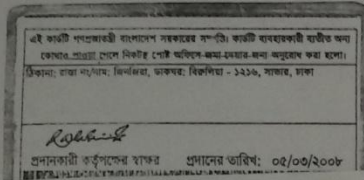 এই কার্ডটি গণপ্রজাতন্ত্রী বাংলাদেশ সরকারের সম্পত্তি। কার্ডটি ব্যবহারকারী ব্যতীত অন্য
কোথাও পাওয়া গেলে নিকটস্থ পোষ্ট অফিসে জমা দেবার জন্য অনুরোধ করা হলো।
ঠিকানা: রাস্তা নং/নাম: জিনজিরা, ডাকঘর: বিরুলিয়া - ১২১৬, সাভার, ঢাকা
প্রদানকারী কর্তৃপক্ষের স্বাক্ষর প্রদানের তারিখ: ০৫/০৩/২০০৮